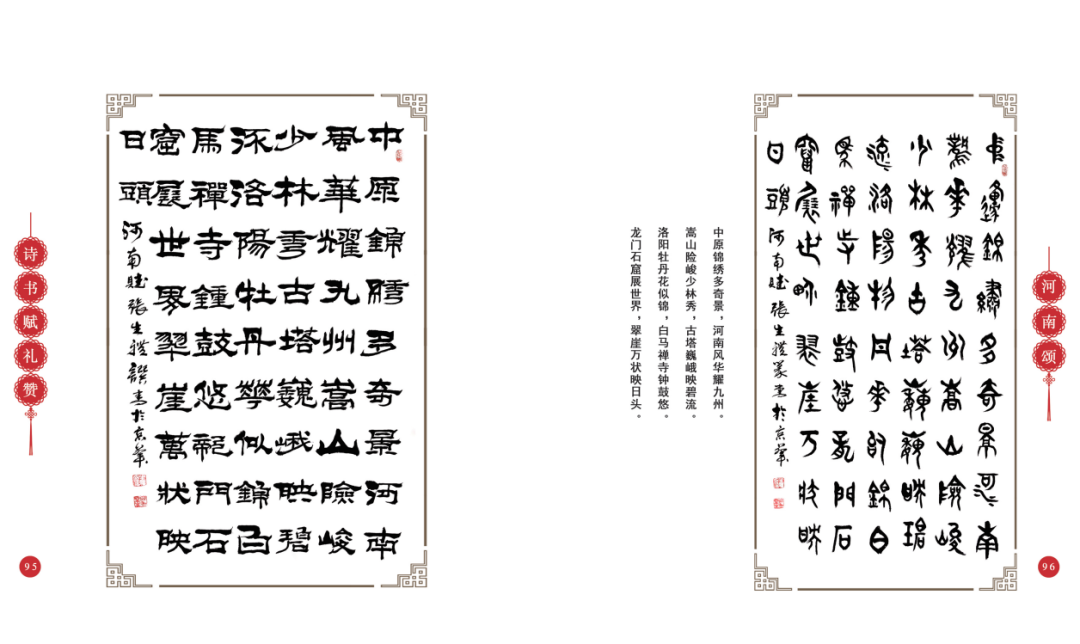 诗书赋礼赞
95
中原錦繡多奇景河南
風華耀九州嵩山險峻
少林秀古塔巍峨映碧
流洛陽牡丹華似錦白
馬禪寺鍾鼓悠龍門石
窟展世界翠崖萬狀映
日頭
河南賦張生禮譔書於京華
中原锦绣多奇景，河南风华耀九州。
嵩山险峻少林秀，古塔巍峨映碧流。
洛阳牡丹花似锦，白马禅寺钟鼓悠。
龙门石窟展世界，翠崖万状映日头。
中原錦繡多奇景河南
風華耀九州嵩山險峻
少林秀古塔巍峨映碧
流洛陽牡丹華似錦白
馬禪寺鍾鼓悠龍門石
窟展世界翠崖万狀映
日頭
河南賦張生禮篆書於京華
河南颂
96